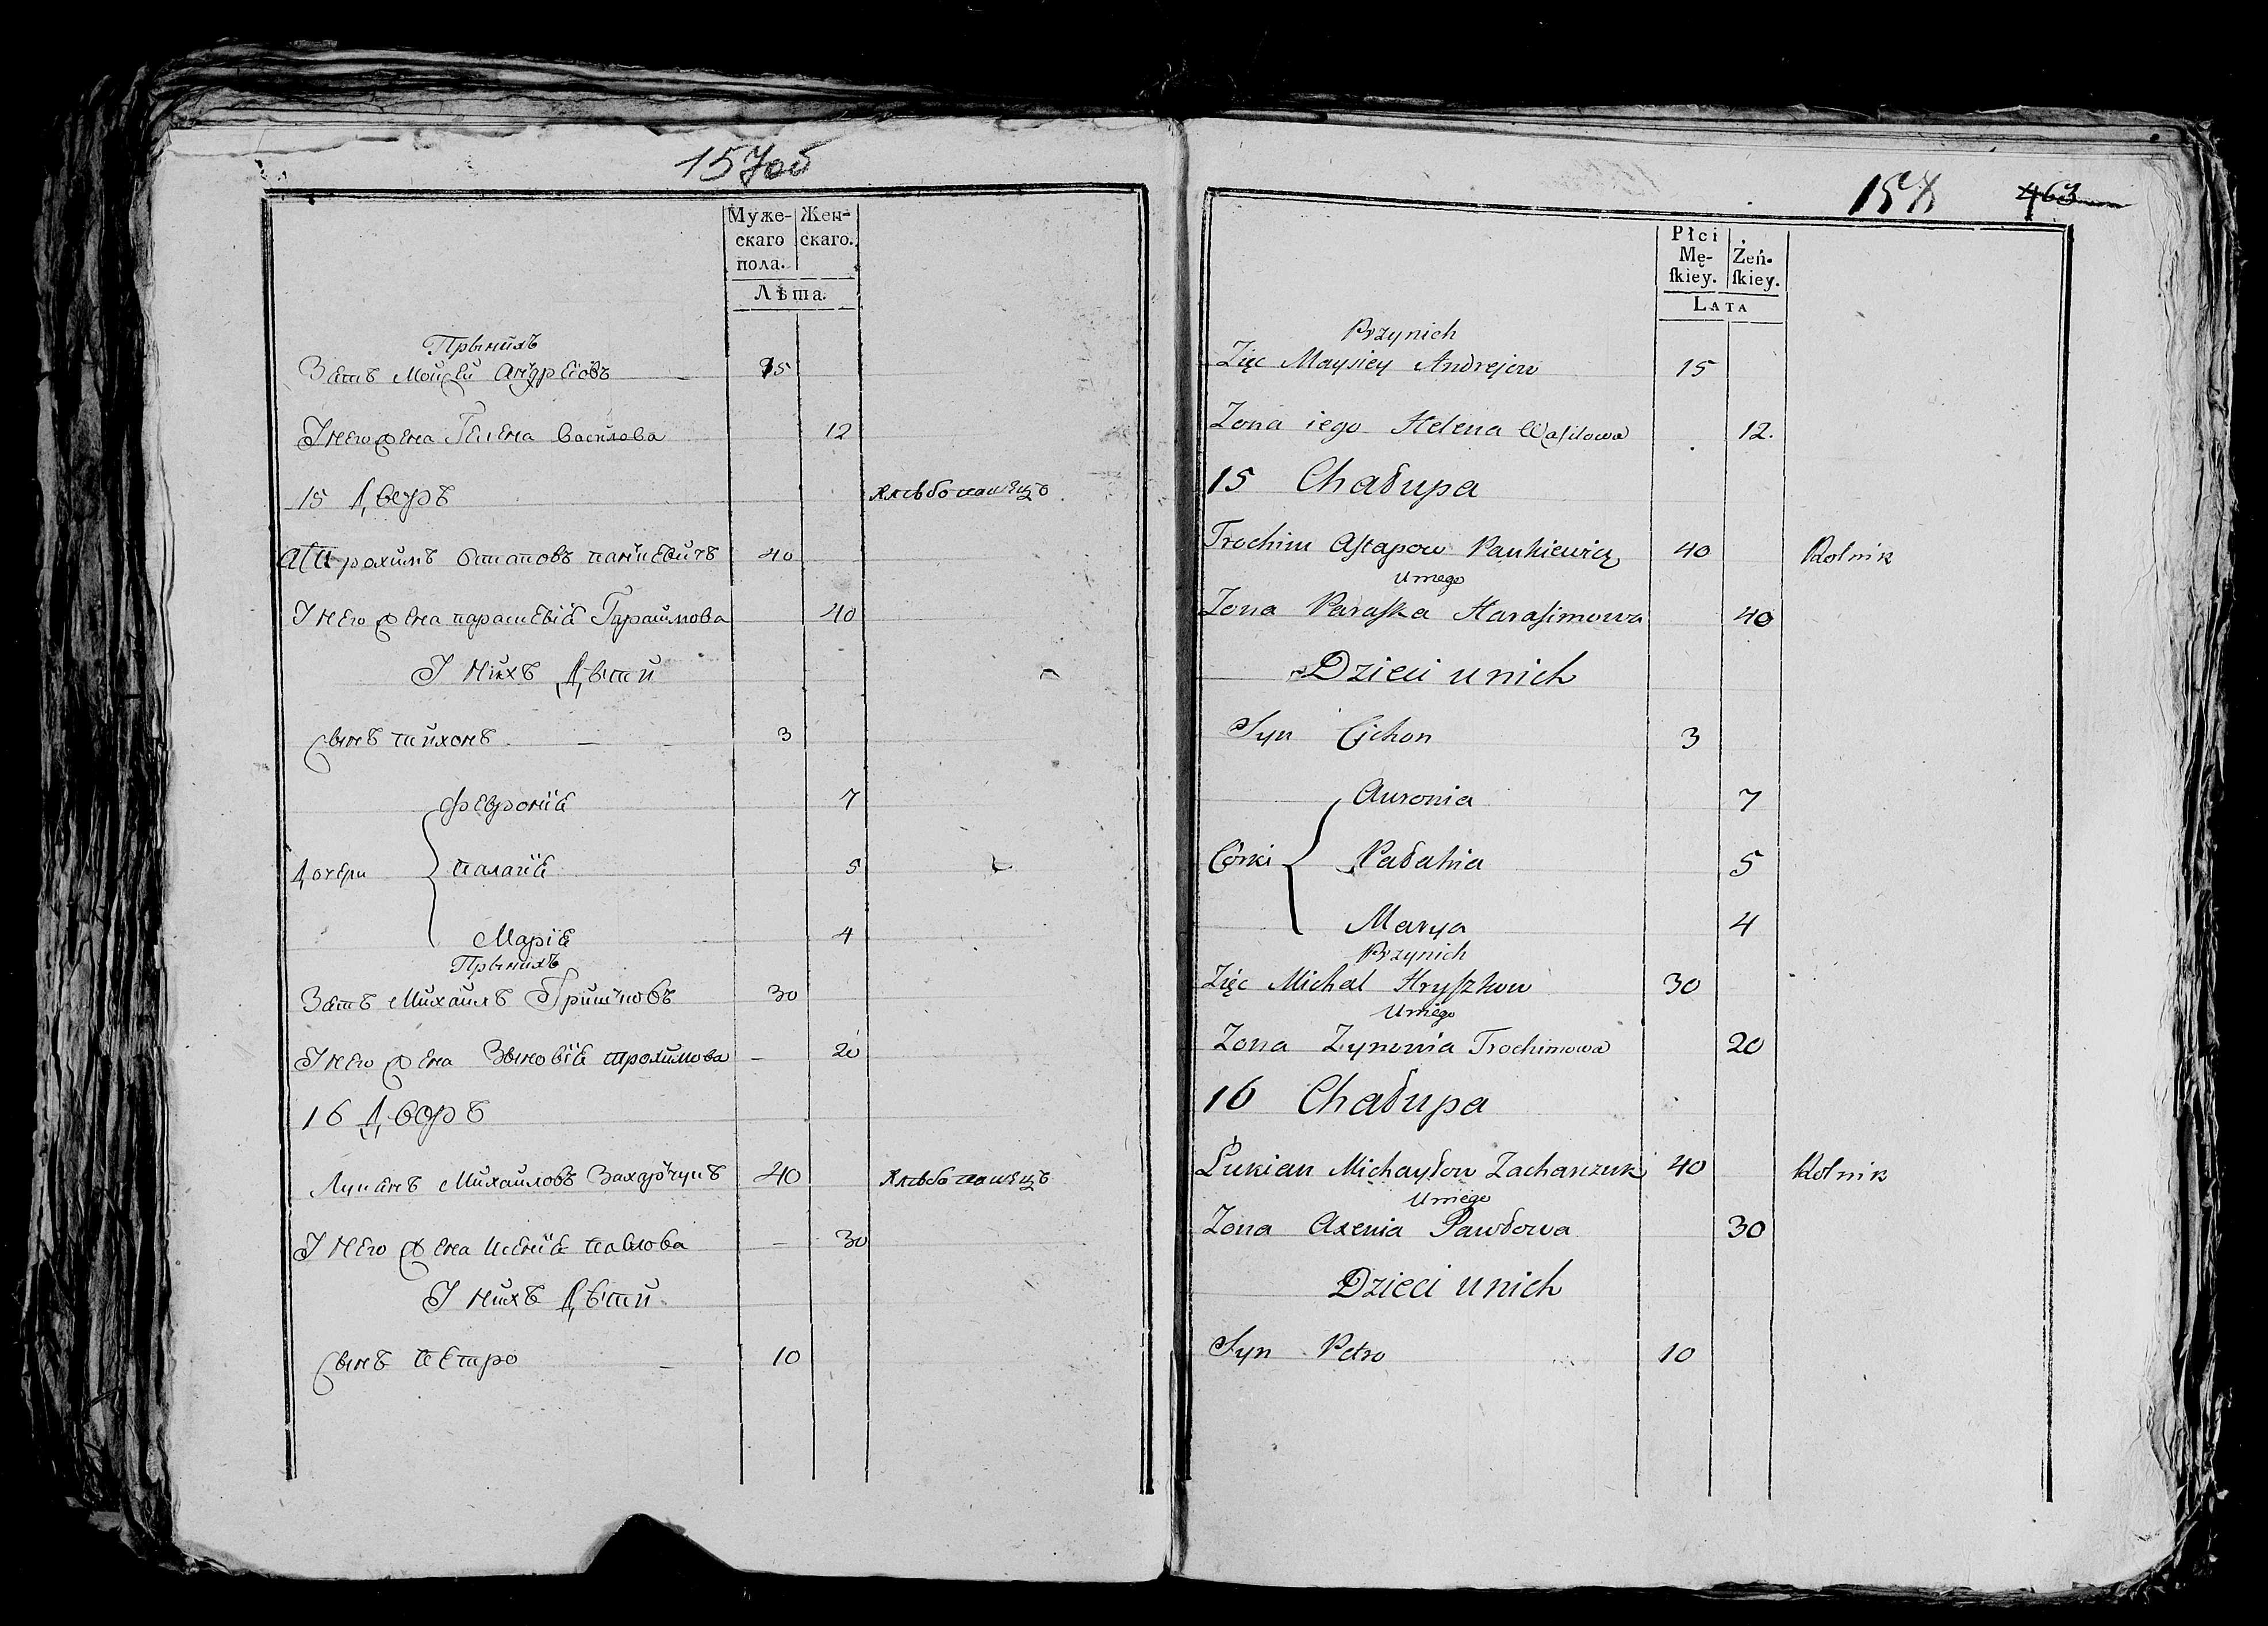 157об
Муже- Жен-
скаго скаго.
пола.
Лѣта.
Прыныхъ
Зять Мойсей Андреіовъ 15
У него жена Гелена Васілова 12
15 Дворъ Хлѣбопашецъ
Трохимъ Остаповъ Панкевичъ 40
У него жена Парасꙗевія Гарасимова 40
У Нихъ Дѣти
Сынъ Тихонъ 3
Февронія 7
Дочери Палагія 5
Марія 4
Прыныхъ
Зять Михаилъ Гришковъ 30
У него жена Зѣновія Трохимова 20
16 Дворъ
Лукянъ Михайловъ Захарчукъ 40 Хлѣбопашецъ
У Него жена Ксенія Павлова 30
У Нихъ Дѣти
Сынъ Петро 10
158 463
Płci
Mę- Żeń-
ſkiey. ſkiey.
LATA
Przynich
Zięc Maysiey Andrejow 15
Zona iego Helena Waſilowa 12.
15 Chałupa
Trochim Aſtapow Pankiewicz 40 Rolnik
Uniego
Zona Paraſka Haraſimowa 40
Dzieci unich
Syn Cichon 3
Auronia 7
Córki Pałahia 5
Marya 4
Przynich
Zięc Michal Hryſzkow 30
Uniego
Zona Zynowia Trochimowa 20
16 Chałupa
Łukian Michayłow Zacharczuk 40 Rolnik
Uniego
Zona Axenia Pawłowa 30
Dzieci unich
Syn Petro 10